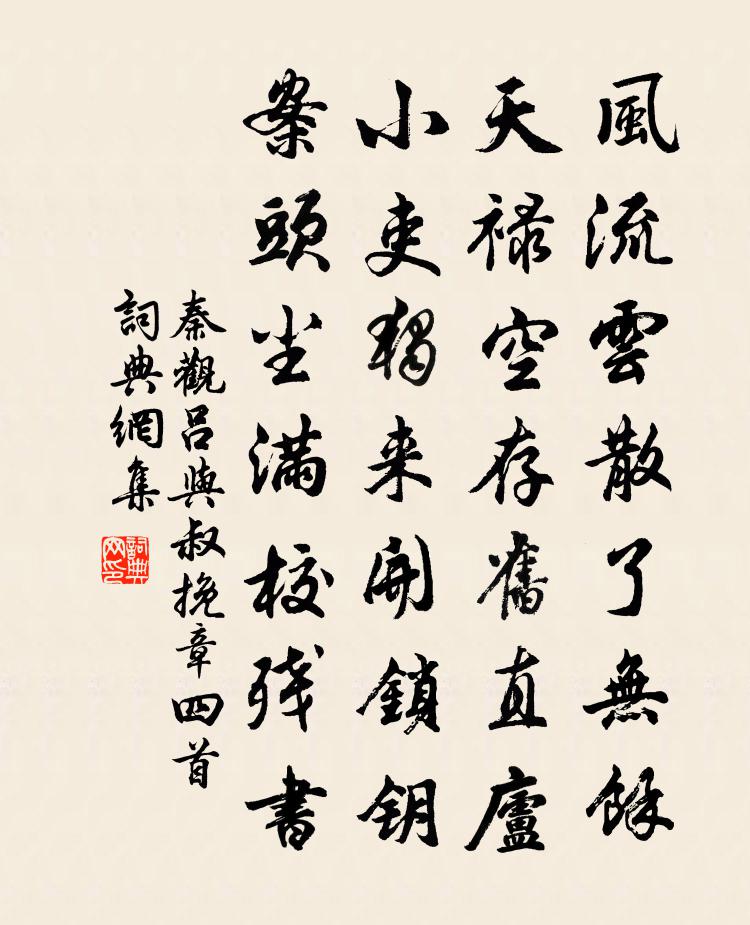 風流雲散了無餘
天禄空存舊直廬
小吏獨来開鎖钥
案頭尘满校残書
秦觀吕與叔挽章四首
詞典網集
詞典网印